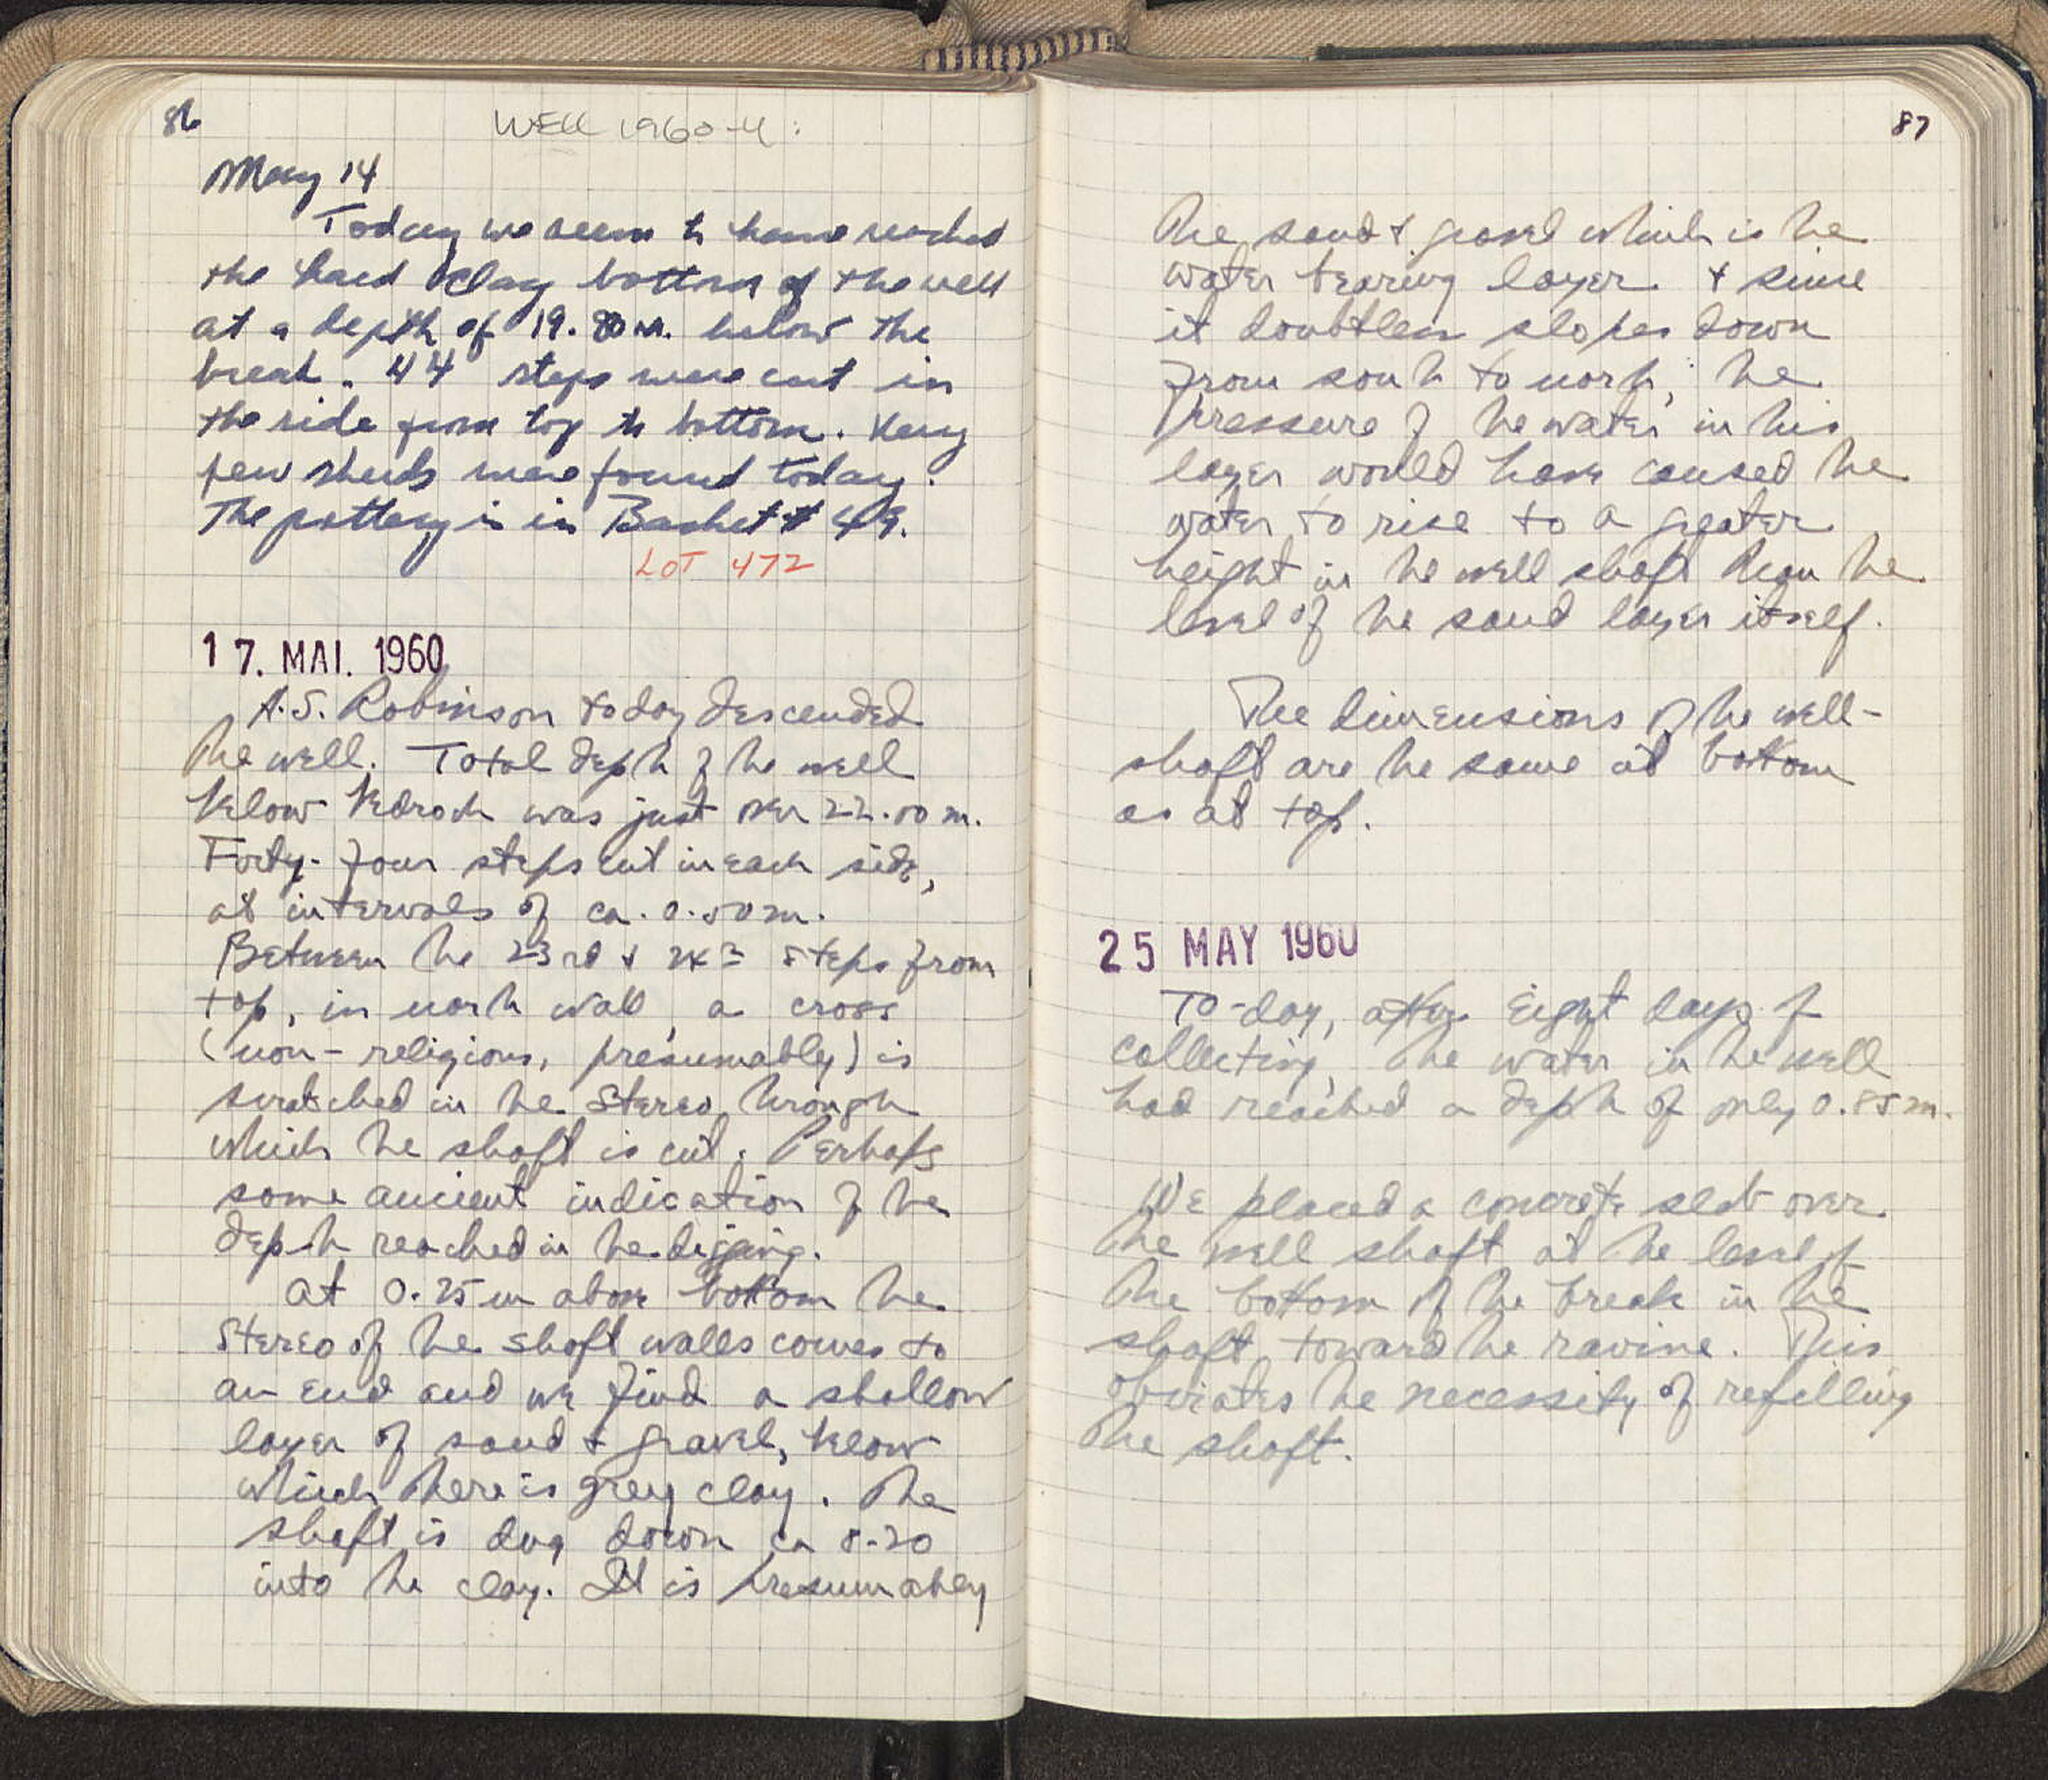 86
WELL 1960-4:
May 14
Today we seem to have reached
the hard clay bottom of the well
at a depth of 19.80 m. below the
break. 44 steps were cut in
the side from top to bottom. Very
few sherds were found today.
The pottery is in Basket # 49.
LOT 472
17. MAI. 1960
H.S. Robinson today descended
the well. Total depth of the well
below bedrock was just over 22.00 m.
Forty-four steps cut in each side,
at intervals of ca. 0.50 m.
Between the 23rd & 24th steps from
top, in north wall, a cross
(non-religious, presumably) is
scratched in the stereo through
which the shaft is cut. Perhaps
some ancient indication of the
depth reached in the digging.
At 0.25 m above bottom the
stereo of the shaft walls comes to
an end and we find a shallow
layer of sand & gravel, below
which there is grey clay. The
shaft is dug down ca 0.20
into the clay. It is presumably
87
the sand & gravel which is the
water bearing layer & since
it doubtless slopes down
from south to north, the
pressure of the water in this
layer would have caused the
water to rise to a greater
height in the well shaft than the
level of the sand layer itself.
The dimensions of the well-
shaft are the same at bottom
as at top.
25 MAY 1960
To-day, after eight days of
collecting, the water in the well
had reached a depth of only 0.85 m.
We placed a concrete slab over
the well shaft at the level of
the bottom of the break in the
shaft toward the ravine. This
obviates the necessity of refilling
the shaft.